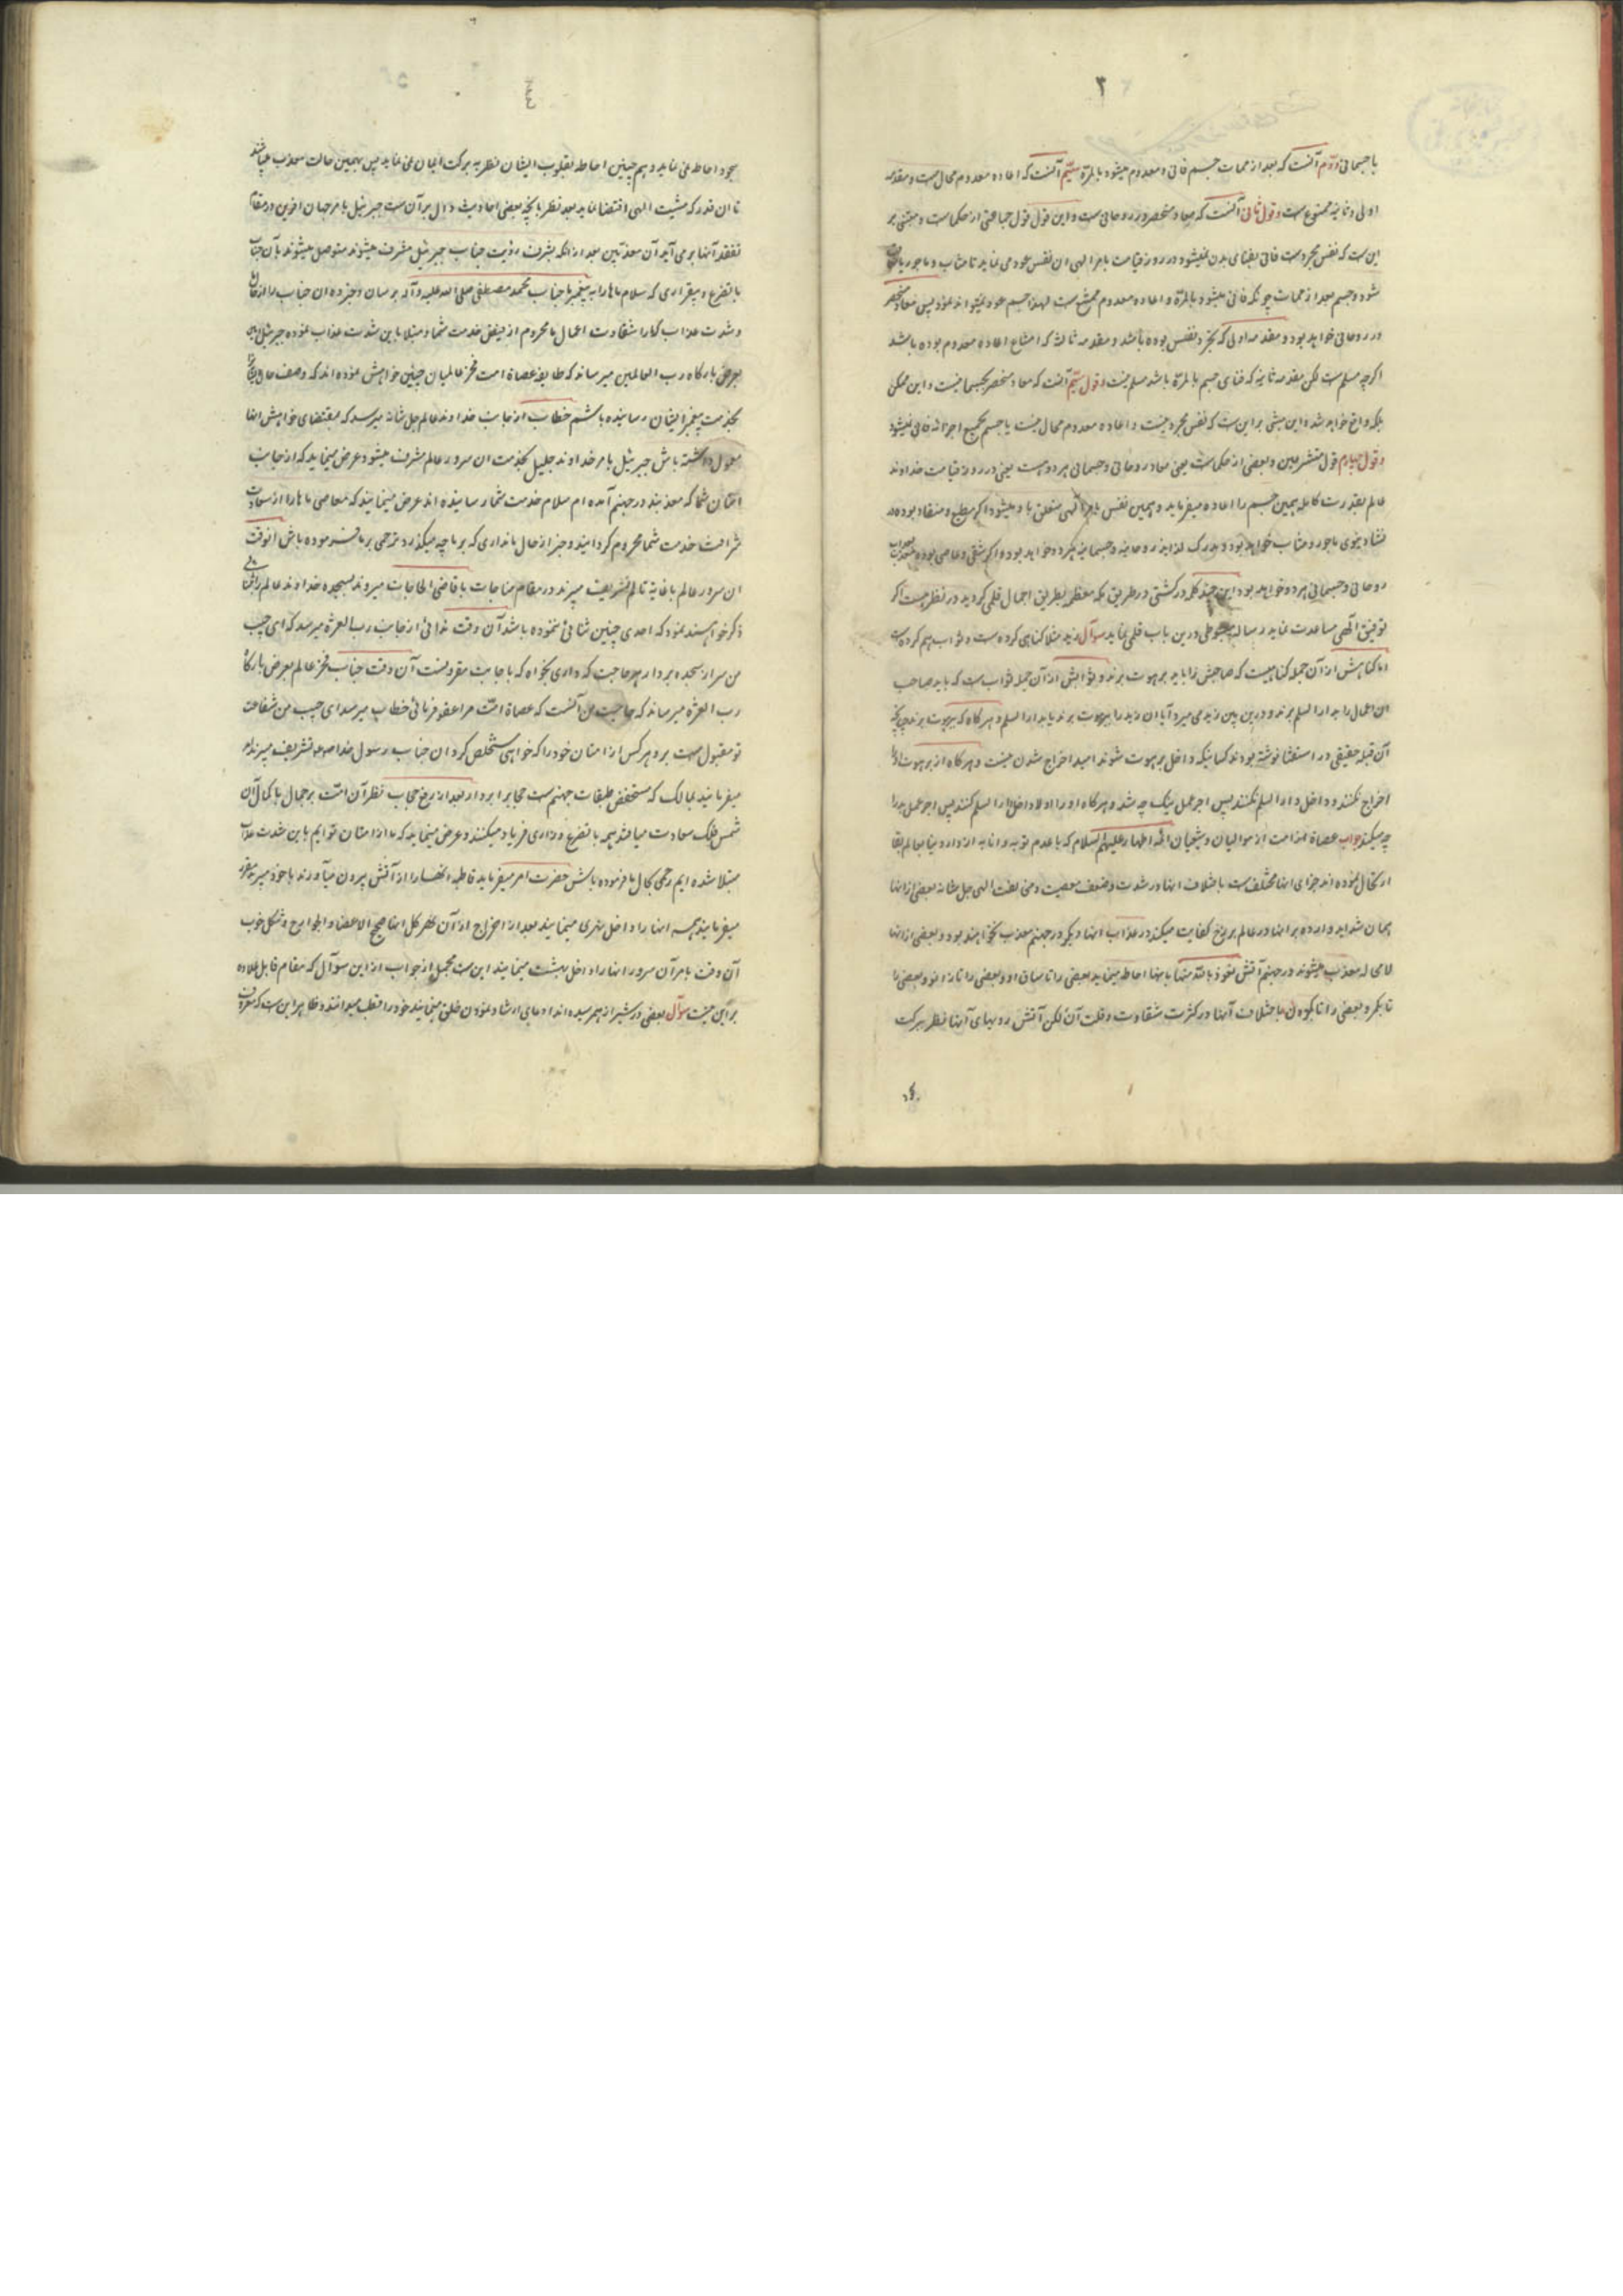 ۳
یا جسمانی دوّم آنست که بعد از ممات جسم فانی و معدوم میشود بالمرّة سیّم آنست که اعاده معدوم محال است و مقدمه
اولی و ثانیه ممنوع است و قول ثانی آنست که معاد منحصر در روحانی است و این قول قول جماعتی از حکماست و مبتنی بر
این ست که نفس مجرد ست فانی بفنای بدن نمیشود و در روز قیامت بامر الهی ان نفس عود می نماید تا مثاب و ماجور یا
شود و جسم بعد از ممات چونکه فانی میشود بالمرّة و اعاده معدوم ممتنع ست لهذا جسم عود نمیتواند نمود پس معاد منحصر
در روحانی خواهد بود و مقدمه اولی که تجرد نفس بوده باشد و مقدمه ثالثه که امتناع اعاده معدوم بوده باشد
اکرچه مسلم ست لکن مقدمه ثانیه که فنای جسم بالمرّة باشد مسلم نیست و قول سیّم آنست که معاد منحصر بجسمانیست و این ممکن
بلکه واقع خواهد شد و این مبتنی بر این ست که نفس مجرد نیست و اعاده معدوم محال نیست یا جسم بجمیع اجزائه فانی نمیشود
و قول چهارم قول متشرعین و بعضی از حکماست یعنی معاد روحانی و جسمانی هر دو ست یعنی در روز قیامت خداوند
عالم بقدرت کامله همین جسم را اعاده میفرماید و همین نفس بامر الهی متعلق باو میشود اکر مطیع و منقاد بوده در
نشاء دنیوی ماجور و مثاب خواهد بود و مدرک لذایذ روحانیه و جسمانیه هر دو خواهد بود و اکر شقی و عاصی بوده معذب بعذاب
روحانی و جسمانی هر دو خواهد بود این چند کلمه در کشتی در طریق مکه معظمه بطریق اجمال قلمی کردید در نظر هست اکر
توفیق الهی مساعدت نماید رساله مبسوطی درین باب قلمی نماید سوآل زید مثلا کناهی کرده ست و ثواب هم کرده ست
اما کناهش از آن جمله کناهیست که صاحبش را باید برهوت برند و ثوابش از آن جمله ثواب ست که باید صاحب
ان اعمال را بدار السلم برند و درین بین زید می میرد آیا ان زید را ببرهوت برند یا بدار السلم و هر کاه که ببرهوت برند چنانچه
آن قبله حقیقی در استفتا نوشته بودند کسانیکه داخل برهوت شوند امید اخراج شدن نیست و هر کاه از برهوت او را
اخراج نکنند و داخل دار السلم نکنند پس اجر عمل نیک چه شد و هر کاه او را اولا داخل دار السلم کنند پس اجر عمل بد را
چه میکنند جواب عصاة امت از موالیان و شیعیان ائمه اطهار علیهم السلام که با عدم توبه و انابه از دار دنیا بعالم بقا
ارتحال نموده اند جزای اینها مختلف ست باختلاف اینها در شدت و ضعف معصیت و مخالفت الهی جل شانه بعضی از اینها
همان شداید وارده بر اینها در عالم برزخ کفایت میکند در عذاب اینها و دیکر در جهنم معذب نخواهند بود و بعضی از اینها
لامحاله معذب میشوند در جهنم آتش نعوذ بالله منها باینها احاطه مینماید بعضی را تا ساق او و بعضی را تا زانو و بعضی را
تا بکمر و بعضی را تا بکردن باختلاف آنها در کثرت شقاوت و قلت آن لکن آتش رویهای آنها نظر ببرکت
٤
سجود احاطه نمی نماید و هم چنین احاطه بقلوب ایشان نظر به برکت ایمان نمی نماید پس بهمین حالت معذب میباشند
تا ان قدر که مشیت الهی اقتضا نماید بعد نظر بانچه بعضی احادیث دال بر آن ست جبرئیل بامر جهان آفرین در مقام
تفقد آنها بر می آید آن معذبین بعد از انکه بشرف رؤیت جناب جبرئیل مشرف میشوند متوصل میشوند بآن جناب
با تضرع و بیقراری که سلام ماها را به پیغمبر ما جناب محمد مصطفی صلی الله علیه و آله برسان و خبر ده ان جناب را از
و شدت عذاب که ما را شقاوت اعمال ما محروم از فیض خدمت شما و مبتلا باین شدت عذاب نموده جبرئیل
بعرض بارکاه رب العالمین میرساند که طایفه عصاة امت فخر عالمیان چنین خواهش نموده اند که وصف حال ایشان را
بخدمت پیغمبر ایشان رسانیده باشم خطاب از جانب خداوند عالم جل شانه میرسد که بمقتضای خواهش انها
معمول داشته باش جبرئیل بامر خداوند جلیل بخدمت ان سرور عالم مشرف میشود عرض مینماید که از جانب
امتان شما که معذبند در جهنم آمده ام سلام خدمت شما رسانیده اند عرض مینمایند که معاصی ماها را از سعادت
شرافت خدمت شما محروم کردانیده و خبر از حال ما نداری که بر ما چه میکذرد ترحمی بر ما فرموده باش انوقت
ان سرور عالم باغایة تالم تشریف میبرند در مقام مناجات با قاضی الحاجات میروند بسجده خداوند عالم را ثنائی
ذکر خواهند نمود که احدی چنین ثنائی ننموده باشد آن وقت ندائی از جانب رب العزة میرسد که ای حبیب
من سر از سجده بردار هر حاجت که داری بخواه که باجابت مقرونست آن وقت جناب فخر عالم بعرض بارکاه
رب العزة میرساند که حاجت من آنست که عصاة امت مرا عفو فرمائی خطاب میرسد ای حبیب من شفاعت
تو مقبول ست برو هر کس از امتان خود را که خواهی مستخلص کردان جناب رسول خدا صلعم تشریف میبرند
میفرمایند بمالک که مستحفظ طبقات جهنم ست حجاب را بردار بعد از رفع حجاب نظر آن امّت بر جمال با کمال آن
شمس فلک سعادت میافتد همه با تضرع و زاری فریاد میکنند و عرض مینمایند که ما از امتان توایم باین شدت عذاب
مبتلا شده ایم رحمی بحال ما فرموده باش حضرت امر میفرماید قاطبه انها را از آتش بیرون میآورند با خود میبرند
میفرمایند همه اینها را داخل نهری مینمایند بعد از اخراج از آن نهر کل اینها صحیح الاعضا و الجوارح و شکل خوب
آن وقت بامر آن سرور اینها را داخل بهشت مینمایند این ست مجمل از جواب از این سوآل که مقام قابل علاوه
بر این نیست سوآل بعضی در شیراز بهمرسیده اند ادعای ارشاد نمودن خلق مینمایند خود را قطب میدانند و ظاهر این ست که